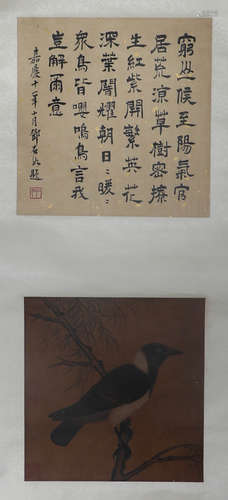 窮山候至陽氣官
居荒涼草樹密撩
生紅紫開繁英花
深葉闇耀朝日〻暖〻
眾鳥皆嚶鳴鳥言我
豈解爾意
嘉慶十一年十月鄧石如題